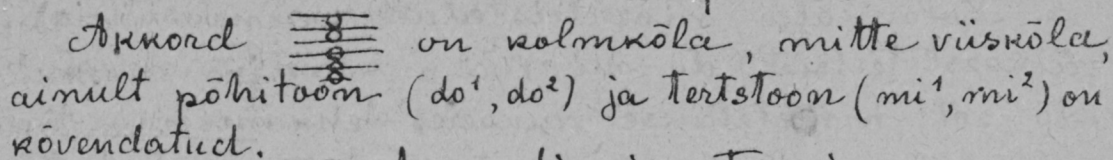 Akkord on kolmkõla, mitte viiskõla,
ainult põhitoon (do¹, do²) ja tertstoon (mi¹, mi²) on
kõvendatud.